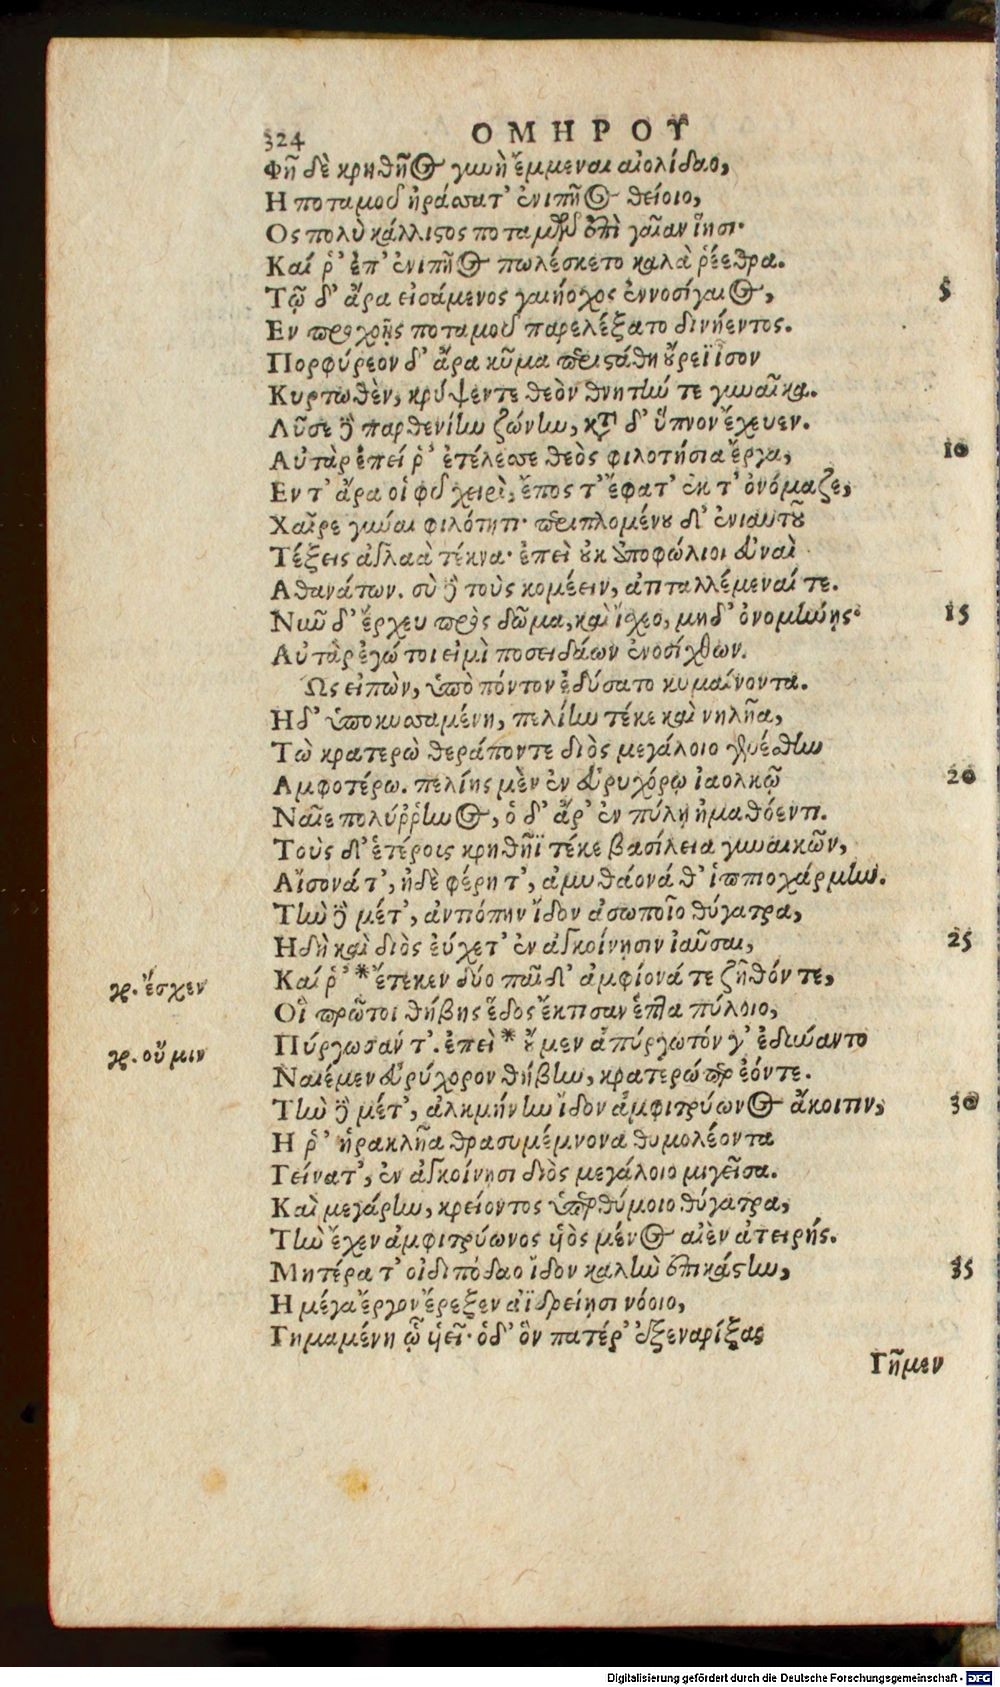 324 ΟΜΗΡΟΥ
Φῆ δὲ κρηθῆος γυνὴ ἔμμεναι αἰολίδαο,
Η ποταμοῦ ἠράσσατ' ἐνιπῆος θείοιο,
Ος πολὺ κάλλιστος ποταμῶν ἐπὶ γαῖαν ἵησι·
Καί ῥ' ἐπ' ἐνιπῆος πωλέσκετο καλὰ ῥέεθρα.
Τῷ δ' ἄρα εἰσάμενος γαιήοχος ἐννοσίγαιος, 5
Εν προχοῇς ποταμοῦ παρελέξατο δινήεντος.
Πορφύρεον δ' ἄρα κῦμα περιστάθη οὔρεϊ ἶσον
Κυρτωθὲν, κρύψεν τε θεὸν θνητήν τε γυναῖκα.
Λῦσε δὲ παρθενίην ζώνην, κατὰ δ' ὕπνον ἔχευεν.
Αὐτὰρ ἐπεί ῥ' ἐτέλεσσε θεὸς φιλοτήσια ἔργα, 10
Εν τ' ἄρα οἱ φῦ χειρὶ, ἔπος τ' ἔφατ' ἐκ τ' ὀνόμαζε,
Χαῖρε γύναι φιλότητι· περιπλομένου δ' ἐνιαυτοῦ
Τέξεις ἀγλαὰ τέκνα· ἐπεὶ οὐκ ἀποφώλιοι εὐναὶ
Αθανάτων. σὺ δὲ τοὺς κομέειν, ἀπταλλέμεναί τε.
Νῦν δ' ἔρχευ πρὸς δῶμα, καὶ ἴσχεο, μηδ' ὀνομήνῃς· 15
Αὐτὰρ ἐγώ τοι εἰμὶ ποσειδάων ἐνοσίχθων.
Ως εἰπὼν, ὑπὸ πόντον ἐδύσατο κυμαίνοντα.
Η δ' ὑποκυσσαμένη, πελίην τέκε καὶ νηλῆα,
Τὼ κρατερὼ θεράποντε διὸς μεγάλοιο γενέσθην
Αμφοτέρω. πελίης μὲν ἐν εὐρυχόρῳ ἰαολκῷ 20
Ναῖε πολύῤῥηνος, ὁ δ' ἄρ' ἐν πύλῃ ἠμαθόεντι.
Τοὺς δ' ἑτέροις κρηθῆϊ τέκε βασίλεια γυναικῶν,
Αἴσονά τ', ἠδὲ φέρητ', ἀμυθάονά θ' ἱππιοχάρμην.
Τὴν δὲ μέτ', ἀντιόπην ἴδον ἀσωποῖο θύγατρα,
Η δὴ καὶ διὸς εὔχετ' ἐν ἀγκοίνῃσιν ἰαῦσαι, 25
Καί ῥ' *ἔτεκεν δύο παῖδ' ἀμφίονά τε ζῆθόν τε,
γρ. ἔσχεν
Οἳ πρῶτοι θήβης ἕδος ἔκτισαν ἑπταπύλοιο,
Πύργωσάν τ'. ἐπεὶ * οὔ μεν ἀπύργωτόν γ' ἐδύναντο
γρ. οὔ μιν
Ναιέμεν εὐρύχορον θήβην, κρατερώ περ ἐόντε.
Τὴν δὲ μέτ', ἀλκμήνην ἴδον ἀμφιτρύωνος ἄκοιτιν, 30
Η ῥ' ἡρακλῆα θρασυμέμνονα θυμολέοντα
Γείνατ', ἐν ἀγκοίνῃσι διὸς μεγάλοιο μιγεῖσα.
Καὶ μεγάρην, κρείοντος ὑπερθύμοιο θύγατρα,
Τὴν ἔχεν ἀμφιτρύωνος υἱὸς μένος αἰὲν ἀτειρής.
Μητέρα τ' οἰδιπόδαο ἴδον καλὴν ἐπικάστην, 35
Η μέγα ἔργον ἔρεξεν ἀϊδρείῃσι νόοιο,
Γημαμένη ᾧ υἱεῖ· ὁ δ' ὃν πατέρ' ἐξεναρίξας
Γῆμεν
Digitalisierung gefördert durch die Deutsche Forschungsgemeinschaft - DFG